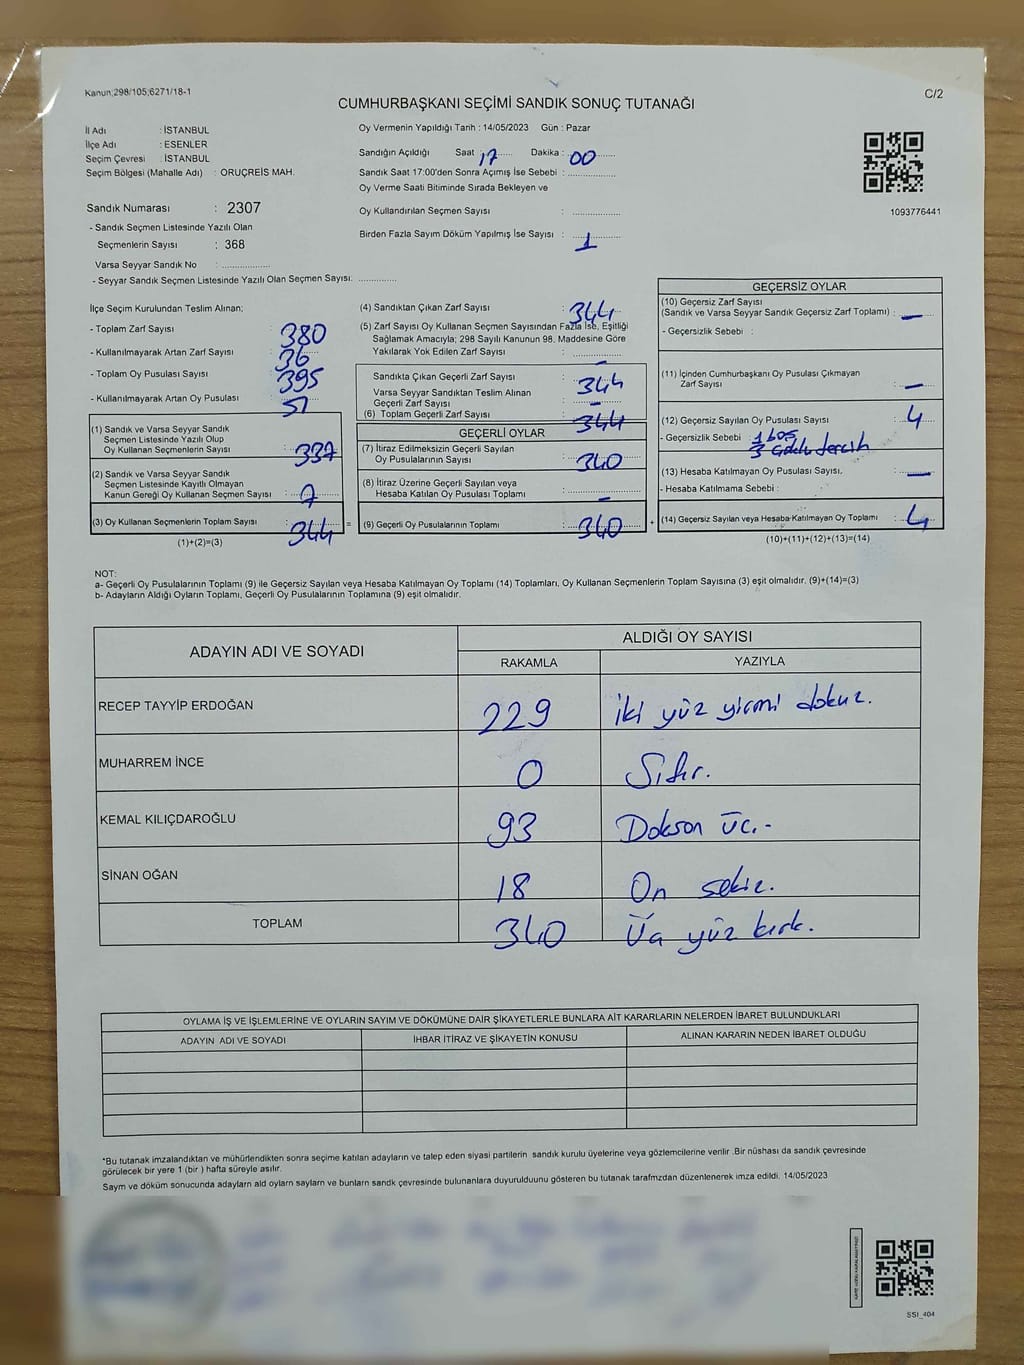 Kanun;298/105;6271/18-1
C/2
CUMHURBAŞKANI SEÇİMİ SANDIK SONUÇ TUTANAĞI
İl Adı : İSTANBUL
İlçe Adı : ESENLER
Seçim Çevresi : İSTANBUL
Seçim Bölgesi (Mahalle Adı) : ORUÇREİS MAH.
Sandık Numarası : 2307
- Sandık Seçmen Listesinde Yazılı Olan
Seçmenlerin Sayısı : 368
Varsa Seyyar Sandık No :
- Seyyar Sandık Seçmen Listesinde Yazılı Olan Seçmen Sayısı:
Oy Vermenin Yapıldığı Tarih : 14/05/2023 Gün : Pazar
Sandığın Açıldığı Saat : 17 Dakika : 00
Sandık Saat 17:00'den Sonra Açımış İse Sebebi :
Oy Verme Saati Bitiminde Sırada Bekleyen ve
Oy Kullandırılan Seçmen Sayısı :
Birden Fazla Sayım Döküm Yapılmış İse Sayısı : 1
1093776441
İlçe Seçim Kurulundan Teslim Alınan;
- Toplam Zarf Sayısı : 380
- Kullanılmayarak Artan Zarf Sayısı : 36
- Toplam Oy Pusulası Sayısı : 395
- Kullanılmayarak Artan Oy Pusulası : 51
(1) Sandık ve Varsa Seyyar Sandık
Seçmen Listesinde Yazılı Olup
Oy Kullanan Seçmenlerin Sayısı : 337
(2) Sandık ve Varsa Seyyar Sandık
Seçmen Listesinde Kayıtlı Olmayan
Kanun Gereği Oy Kullanan Seçmen Sayısı : 7
(3) Oy Kullanan Seçmenlerin Toplam Sayısı : 344 =
(1)+(2)=(3)
(4) Sandıktan Çıkan Zarf Sayısı : 344
(5) Zarf Sayısı Oy Kullanan Seçmen Sayısından Fazla İse, Eşitliği
Sağlamak Amacıyla; 298 Sayılı Kanunun 98. Maddesine Göre
Yakılarak Yok Edilen Zarf Sayısı : –
Sandıkta Çıkan Geçerli Zarf Sayısı : 344
Varsa Seyyar Sandıktan Teslim Alınan
Geçerli Zarf Sayısı : –
(6) Toplam Geçerli Zarf Sayısı : 344
GEÇERLİ OYLAR
(7) İtiraz Edilmeksizin Geçerli Sayılan
Oy Pusulalarının Sayısı : 340
(8) İtiraz Üzerine Geçerli Sayılan veya
Hesaba Katılan Oy Pusulası Toplamı : –
(9) Geçerli Oy Pusulalarının Toplamı : 340 +
GEÇERSİZ OYLAR
(10) Geçersiz Zarf Sayısı
(Sandık ve Varsa Seyyar Sandık Geçersiz Zarf Toplamı) : –
- Geçersizlik Sebebi :
(11) İçinden Cumhurbaşkanı Oy Pusulası Çıkmayan
Zarf Sayısı : –
(12) Geçersiz Sayılan Oy Pusulası Sayısı : 4
- Geçersizlik Sebebi : 1 boş
3 Çoklu tercih
(13) Hesaba Katılmayan Oy Pusulası Sayısı. –
- Hesaba Katılmama Sebebi :
(14) Geçersiz Sayılan veya Hesaba Katılmayan Oy Toplamı : 4
(10)+(11)+(12)+(13)=(14)
NOT:
a- Geçerli Oy Pusulalarının Toplamı (9) ile Geçersiz Sayılan veya Hesaba Katılmayan Oy Toplamı (14) Toplamları, Oy Kullanan Seçmenlerin Toplam Sayısına (3) eşit olmalıdır. (9)+(14)=(3)
b- Adayların Aldığı Oyların Toplamı, Geçerli Oy Pusulalarının Toplamına (9) eşit olmalıdır.
ADAYIN ADI VE SOYADI
ALDIĞI OY SAYISI
RAKAMLA YAZIYLA
RECEP TAYYİP ERDOĞAN 229 İki yüz yirmi dokuz.
MUHARREM İNCE 0 Sıfır.
KEMAL KILIÇDAROĞLU 93 Doksan üç.-
SİNAN OĞAN 18 On sekiz.
TOPLAM 340 Üç yüz kırk.
OYLAMA İŞ VE İŞLEMLERİNE VE OYLARIN SAYIM VE DÖKÜMÜNE DAİR ŞİKAYETLERLE BUNLARA AİT KARARLARIN NELERDEN İBARET BULUNDUKLARI
ADAYIN ADI VE SOYADI İHBAR İTİRAZ VE ŞİKAYETİN KONUSU ALINAN KARARIN NEDEN İBARET OLDUĞU
*Bu tutanak imzalandıktan ve mühürlendikten sonra seçime katılan adayların ve talep eden siyasi partilerin sandık kurulu üyelerine veya gözlemcilerine verilir .Bir nüshası da sandık çevresinde
görülecek bir yere 1 (bir ) hafta süreyle asılır.
Sayım ve döküm sonucunda adayların ald oyların sayların ve bunların sandk çevresinde bulunanlara duyurulduunu gösteren bu tutanak tarafmzdan düzenlenerek imza edildi. 14/05/2023
SSI_404